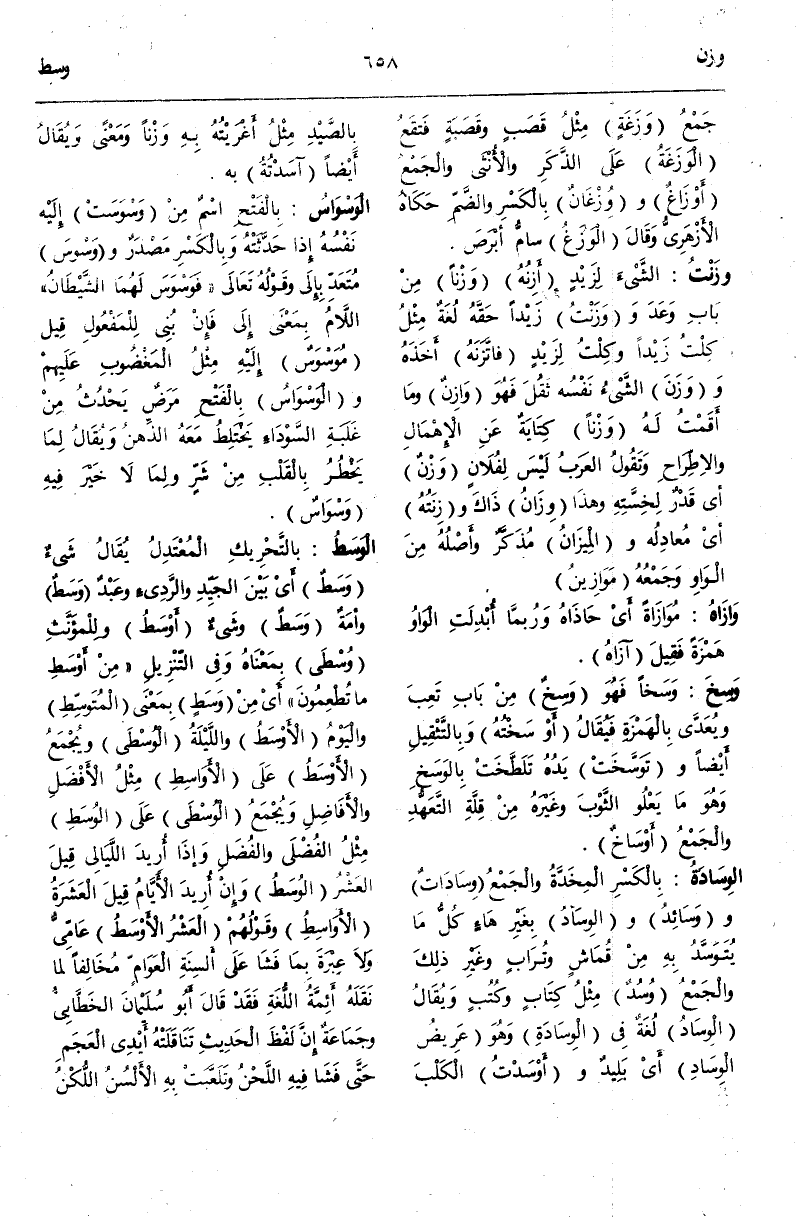 وزن
٦٥٨
وسط
جَمْعُ (وَزَغَةٍ) مِثْلُ قَصَبٍ وقَصَبَةٍ فَتَقَعُ
(الْوَزَغَةُ) عَلَى الذَّكَرِ والْأُنْثَى والْجَمْعُ
(أَوْزَاغٌ) و (وُزْغَانٌ) بِالْكَسْرِ والضَّمِّ حَكَاهُ
الْأَزْهَرِىُّ وَقَالَ (الْوَزَغُ) سامُّ أبْرَصَ .
وزَنْتُ : الشَّىْءَ لِزَيْدٍ (أَزِنُهُ) (وَزْناً) مِنْ
بَابِ وَعَدَ وَ (وَزَنْتُ) زَيْداً حَقَّهُ لُغَةٌ مِثْلُ
كِلْتُ زَيْداً وكِلْتُ لِزَيْدٍ (فاتَّزَنَهُ) أَخَذَهُ
وَ (وَزَنَ) الشَّىْءُ نَفْسُه ثَقُلَ فَهُوَ (وَازِنٌ) ومَا
أَقَمْتُ لَهُ (وَزْناً) كِنَايَةٌ عَنِ الْإِهْمَالِ
والاِطِّراحِ وَتَقُولُ العَربُ لَيْسَ لِفُلَانٍ (وَزْنٌ)
أى قَدْرٌ لِخِسَّتِهِ وهذَا (وِزَانُ) ذَاكَ و (زِنَتُهُ)
أىْ مُعادِلُه و (المِيْزَانُ) مُذَكَّرٌ وأَصْلُهُ مِنَ
الْوَاوِ وَجَمْعُهُ (مَوَازِينُ)
وَازَاهُ : مُوَازَاةً أىْ حَاذَاهُ وَرُبمَّا أُبْدِلَتِ الْوَاوُ
هَمْزَةً فَقِيلَ (آزَاهُ) .
وَسِخَ : وَسَخاً فَهُوَ (وَسِخٌ) مِنْ بَابِ تَعِبَ
ويُعَدَّى بِالْهَمْزَةِ فَيُقَالُ (أَوْ سَخْتُهُ) وَبِالتَّثْقِيلِ
أَيْضاً و (تَوَسَّخَتْ) يَدُهُ تَلَطَّخَتْ بِالوَسَخِ
وَهُوَ مَا يَعْلُو الثَّوْبَ وغَيْرَهُ مِنْ قِلَّةِ التَّعَهُّدِ
والْجَمْعُ (أَوْسَاخٌ) .
الوِسَادَةُ : بِالْكَسْرِ الْمِخَدَّةُ والْجَمْعُ (وِسَادَاتٌ)
و (وَسَائِدُ) و (الْوِسَادُ) بِغَيْرِ هَاءٍ كُلُّ مَا
يُتَوَسَّدُ بِهِ مِنْ قُمَاشٍ وتُرَابٍ وغَيْرِ ذلِكَ
والْجَمْعُ (وُسُدٌ) مِثْلُ كِتَابٍ وكُتُبٍ وَيُقَالُ
(الْوِسَادُ) لُغَةٌ فِى (الْوِسَادَةِ) وَهُوَ (عَرِيضُ
الْوِسَادِ) أىْ بَلِيدٌ و (أَوْسَدْتُ) الْكَلْبَ
بِالصَّيْدِ مِثْلُ أَغْرَيْتُهُ بِهِ وَزْناً وَمَعْنًى وَيُقَالُ
أَيْضاً (آسَدْتُهُ) به .
الْوَسْوَاسُ : بِالْفَتْحِ اسْمٌ مِنْ (وَسْوَسَتْ) إِلَيْهِ
نَفْسُهُ إِذَا حَدَّثَتْهُ وَبِالْكَسْرِ مَصْدَرٌ و (وَسْوَسَ)
مُتَعَدٍّ بِإِلَى وقَوْلُهُ تَعَالَى « فَوَسْوَسَ لَهُمَا الشَّيْطَانُ»
اللَّامُ بِمَعْنَى إِلَى فَإِنْ بُنِى لِلْمَفْعُولِ قِيل
(مُوَسْوَسٌ) إِلَيْهِ مِثْلُ الْمَغْضُوبِ عَلَيهِمْ
و (الْوَسْوَاسُ) بِالْفَتْحِ مَرَضٌ يَحْدُثُ مِنْ
غَلَبَةِ السَّوْدَاءِ يَخْتَلِطُ مَعَهُ الذِّهْنُ وَيُقَالُ لِمَا
يَخْطُرُ بِالْقَلْبِ مِنْ شَرٍّ ولِمَا لَا خَيْرَ فِيهِ
(وَسْوَاسٌ) .
الْوَسَطُ : بالتَّحْرِيكِ الْمُعْتَدِلُ يُقَالُ شَىءٌ
(وَسَطٌ) أَىْ بَيْنَ الجَيِّدِ والرَّدِىءِ وعَبْدٌ (وَسَطٌ)
وأمَةٌ (وَسَطٌ) وشَىءٌ (أَوْسَطُ) ولِلْمؤَنَّثِ
(وُسْطَى) بِمَعْنَاهُ وَفى التَّنْزِيلِ « مِنْ أَوْسَطِ
مَا تُطْعِمُونَ» أَىْ مِنْ (وَسَطٍ) بِمَعْنَى (الْمُتَوسِّطِ)
والْيَوْمُ (الْأَوْسَطُ) واللَّيْلَةُ (الْوُسْطَى) ويُجْمَعُ
(الْأَوْسَطُ) عَلَى (الْأَوَاسِطِ) مِثْلُ الْأَفْضَلِ
والْأَفَاضِلِ وَيُجْمَعُ (الْوُسْطَى) عَلَى (الوُسَطِ)
مِثْلُ الفُضْلَى والفُضَلِ وَإِذَا أُرِيدَ اللَّيَالِى قِيلَ
العَشْرُ (الْوُسَطُ) وَإِنْ أُرِيدَ الأَيَّامُ قِيلَ الْعَشَرَةُ
(الْأَوَاسِطُ) وقَوْلُهُمْ (الْعَشْرُ الأَوْسَطُ) عَامِّىٌّ
وَلاَ عِبْرَةَ بِمَا فَشَا عَلَى أَلسِنَةِ الْعَوَامِّ مُخَالِفاً لما
نَقَلَهُ أَئِمَّةُ اللُّغَةِ فَقَدْ قَالَ أَبُو سُلَيْمَانَ الخَطَّابِىُّ
وجَماعَةٌ إِنَّ لَفْظَ الْحَدِيثِ تَنَاقَلَتْهُ أَيْدِى العَجَمِ
حَتَّى فَشَا فِيهِ اللَّحْنُ وتَلَعَّبَتْ بِهِ الْأَلْسُنُ اللُّكْنُ